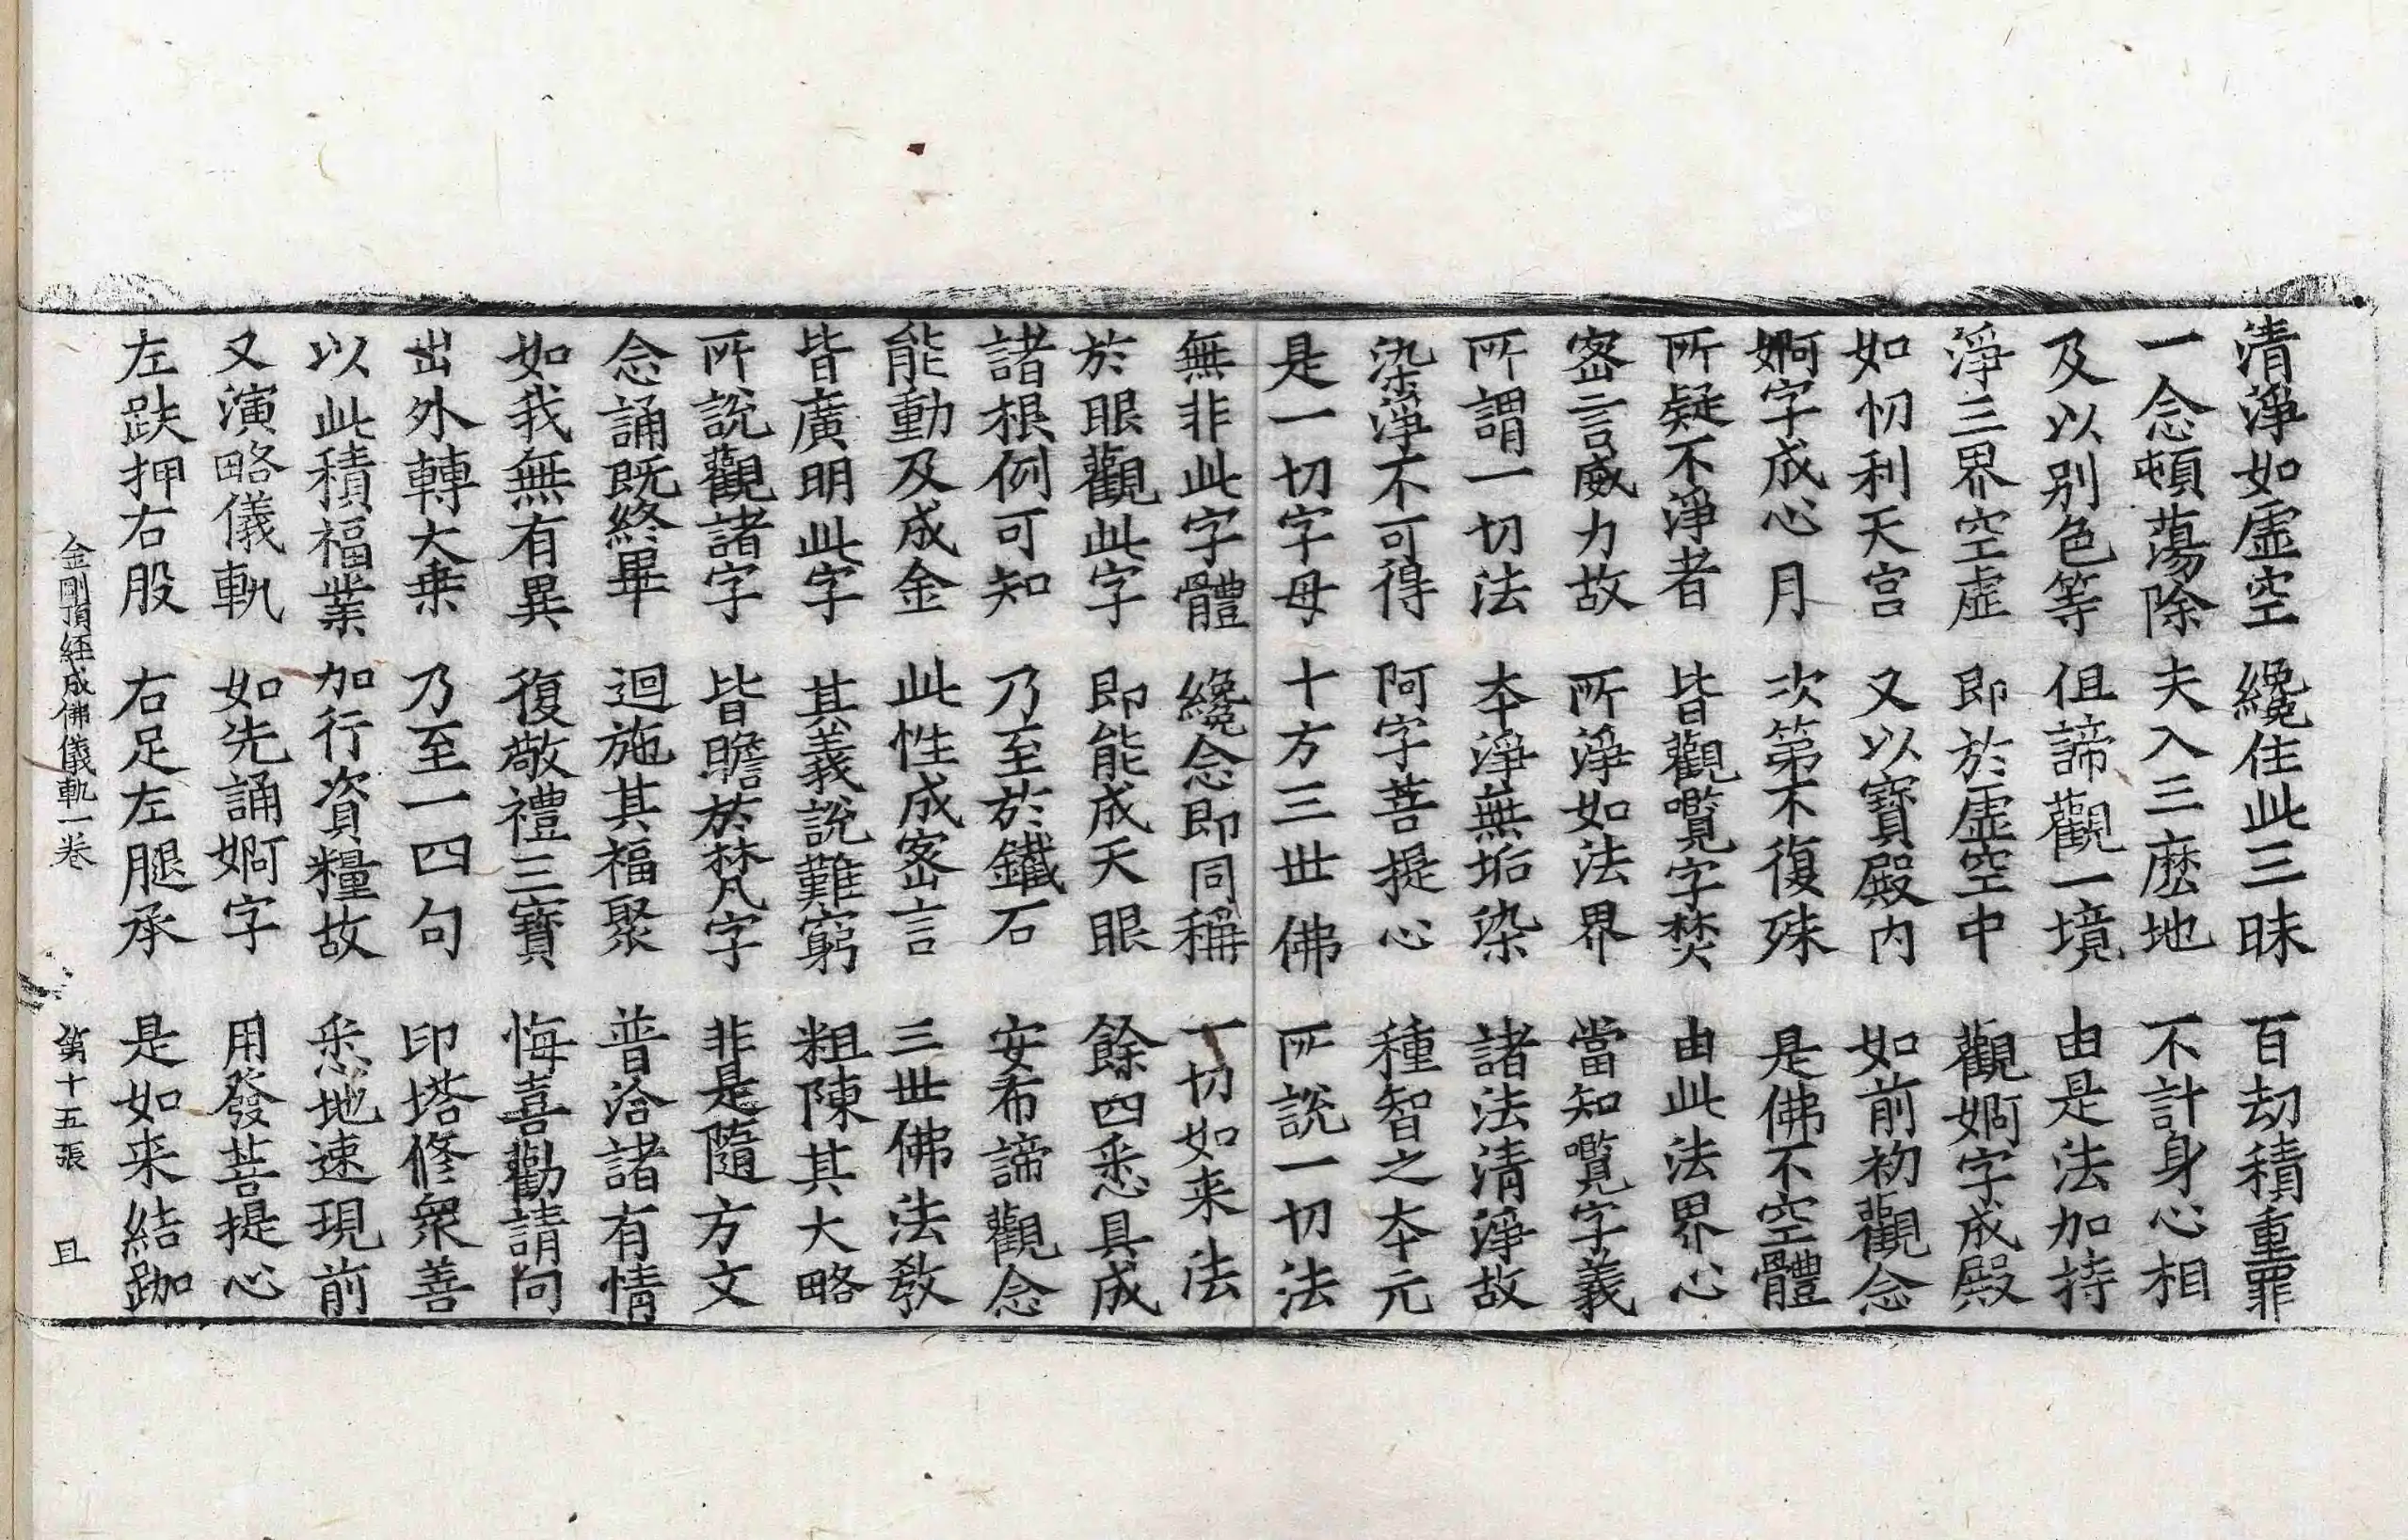 清淨如虛空 纔住此三昧 百劫積重罪
一念頓蕩除 夫入三麽地 不計身心相
及以別色等 但諦觀一境 由是法加持
淨三界空虛 即於虛空中 觀婀字成殿
如忉利天宮 又以寶殿內 如前初觀念
婀字成心月 次第不復殊 是佛不空體
所疑不淨者 皆觀囕字焚 由此法界心
密言威力故 所淨如法界 當知囕字義
所謂一切法 本淨無垢染 諸法清淨故
染淨不可得 阿字菩提心 種智之本元
是一切字母 十方三世佛 所說一切法
無非此字體 纔念即同稱 一切如来法
於眼觀此字 即能成天眼 餘四悉具成
諸根例可知 乃至於鐵石 安布諦觀念
能動及成金 此性成密言 三世佛法教
皆廣明此字 其義說難窮 粗陳其大略
所說觀諸字 皆瞻於梵字 非是隨方文
念誦既終畢 迴施其福聚 普洽諸有情
如我無有異 復敬禮三寶 悔喜勸請向
出外轉大乗 乃至一四句 印塔修衆善
以此積福業 加行資糧故 悉地速現前
又演略儀軌 如先誦婀字 用發菩提心
左趺押右股 右足左腿承 是如来結跏
金剛頂經成佛儀軌一卷 第十五張 且